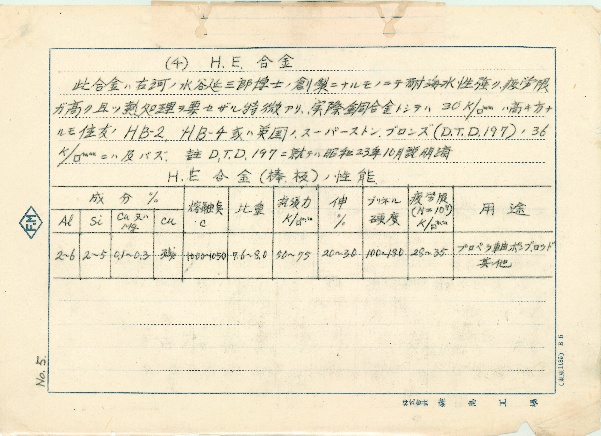 (4) H.E. 合金
此合金ハ古河ノ水谷延三郎博士ノ創製ニナルモノニテ耐海水性強ク、疲労限
ガ高ク且ツ熱処理ヲ要セザル特徴アリ、実際銅合金トシテハ 30 K/□mm ハ高キ方ナ
ルモ住友ノ HB-2 HB-4 或ハ英国ノスーパーストン、ブロンズ (D.T.D. 197) ノ 36
K/□mm ニハ及バズ 註 D.T.D. 197 ニ就テハ昭和23年10月説明済
H.E 合金(棒板)ノ性能
成分 % 熔融点 °C 比重 抗張力 K/□mm 伸 % ブリネル硬度 疲労限 K/□mm 用途
Al Si Cu
2~6 2~5 0.1~0.3 残 1000~1050 7.6~8.0 50~75 20~30 100~180 25~35 プロペラ軸
其他
No. 5.
F.M
B 5
株式会社 工場